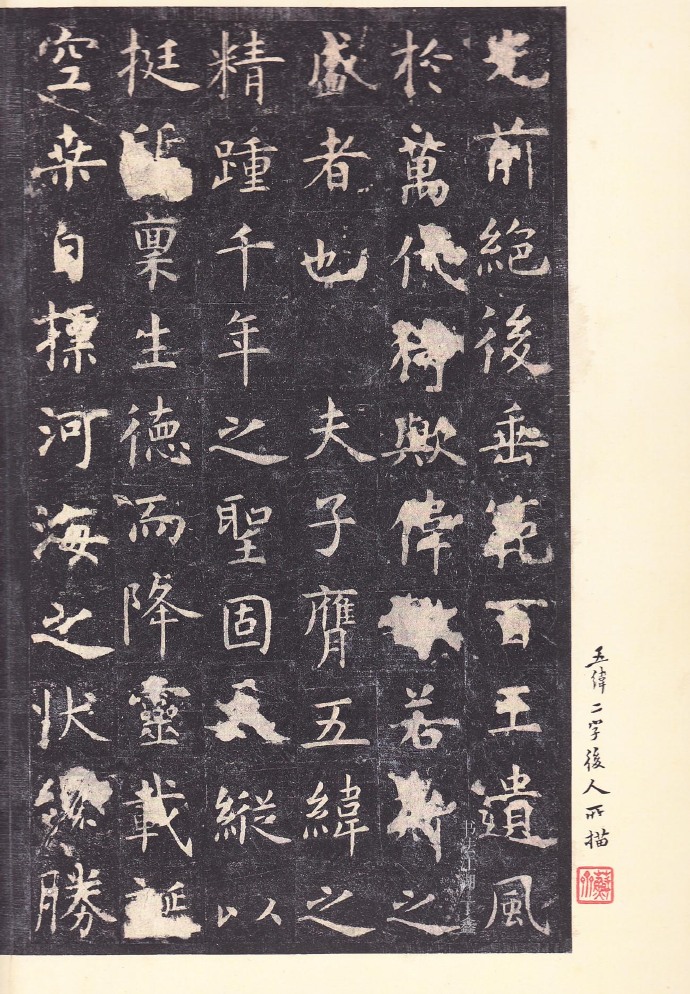 光前絕後垂範百王遺風
於萬代猗歟偉若斯之
盛者也夫子膺五緯之
精踵千年之聖固天縱以
挺質稟生德而降靈載誕
空桒自摽河海之狀纔勝
五偉二字後人所描
书法江湖丁鑫